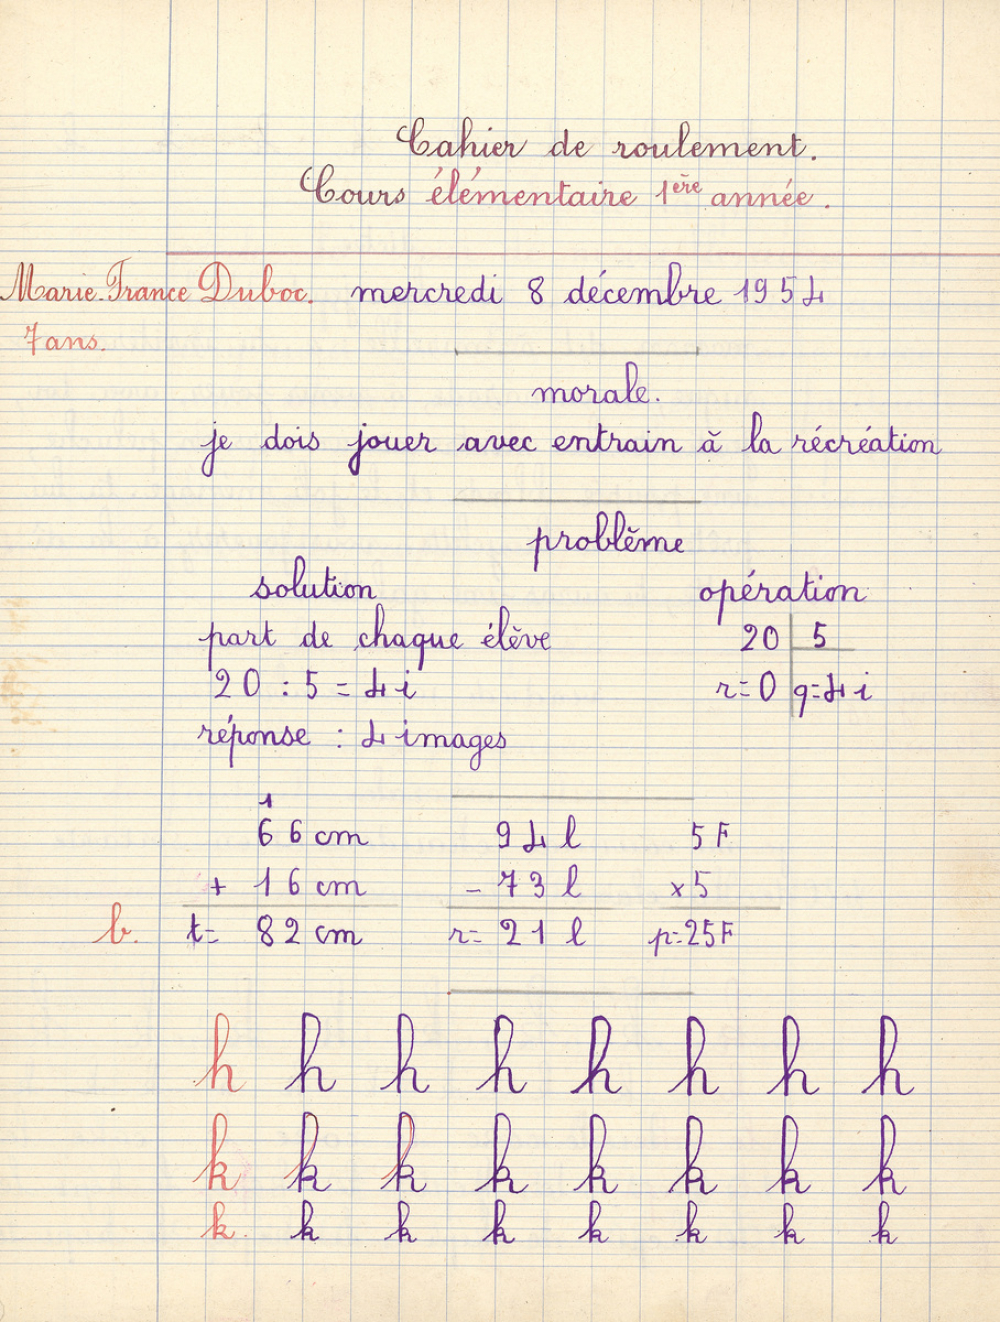 Cahier de roulement.
Cours élémentaire 1ère année.
Marie-France Duboc. mercredi 8 décembre 1954
7 ans.
morale.
je dois jouer avec entrain à la récréation
problème
solution opération
part de chaque élève 20 5
20 : 5 = 4 i r=0 q=4 i
réponse : 4 images
1
66 cm 94 l 5 F
+ 16 cm - 73 l x 5
b. t= 82 cm r= 21 l p=25F
h h h h h h h h
k k k k k k k k
k k k k k k k k